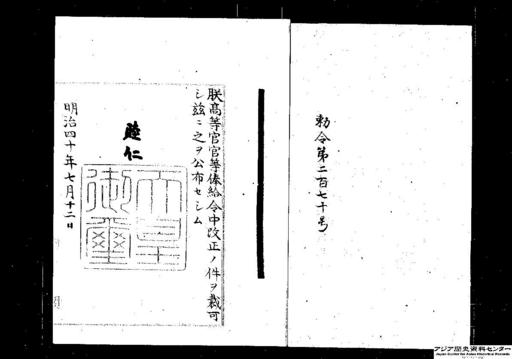 勅令第二百七十号
朕高等官官等俸給令中改正ノ件ヲ裁可
シ茲ニ之ヲ公布セシム
睦仁
天皇御璽
明治四十年七月十二日
アジア歴史資料センター
Japan Center for Asian Historical Records